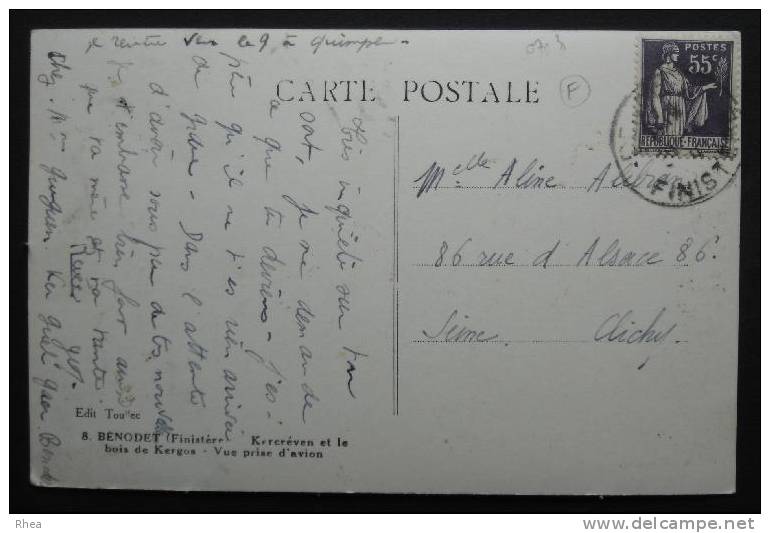 je rentre vers le 9 à Quimper -
CARTE POSTALE
F
POSTES
55c
REPUBLIQUE-FRANÇAISE
FINIST
Très inquiète sur ton
sort, je me demande
ce que tu deviens - j'es-
père qu'il ne t'es rien arrivé
de grave - Dans l'attente
d'avoir sous peu de tes nouvelles
je t'embrasse bien fort ainsi
que ta mère et ta tante
chez Mme Ker
Melle Aline
86 rue d'Alsace 86
Seine. Clichy.
Edit Toullec
8. BÉNODET (Finistère) Kercréven et le
bois de Kergos - Vue prise d'avion
Rhea
www.delcampe.net